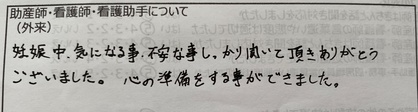 助産師・看護師・看護助手について
(外来)
妊娠中、気になる事、不安な事し、かり聞いて頂きありがとう
ございました。心の準備をする事ができました。